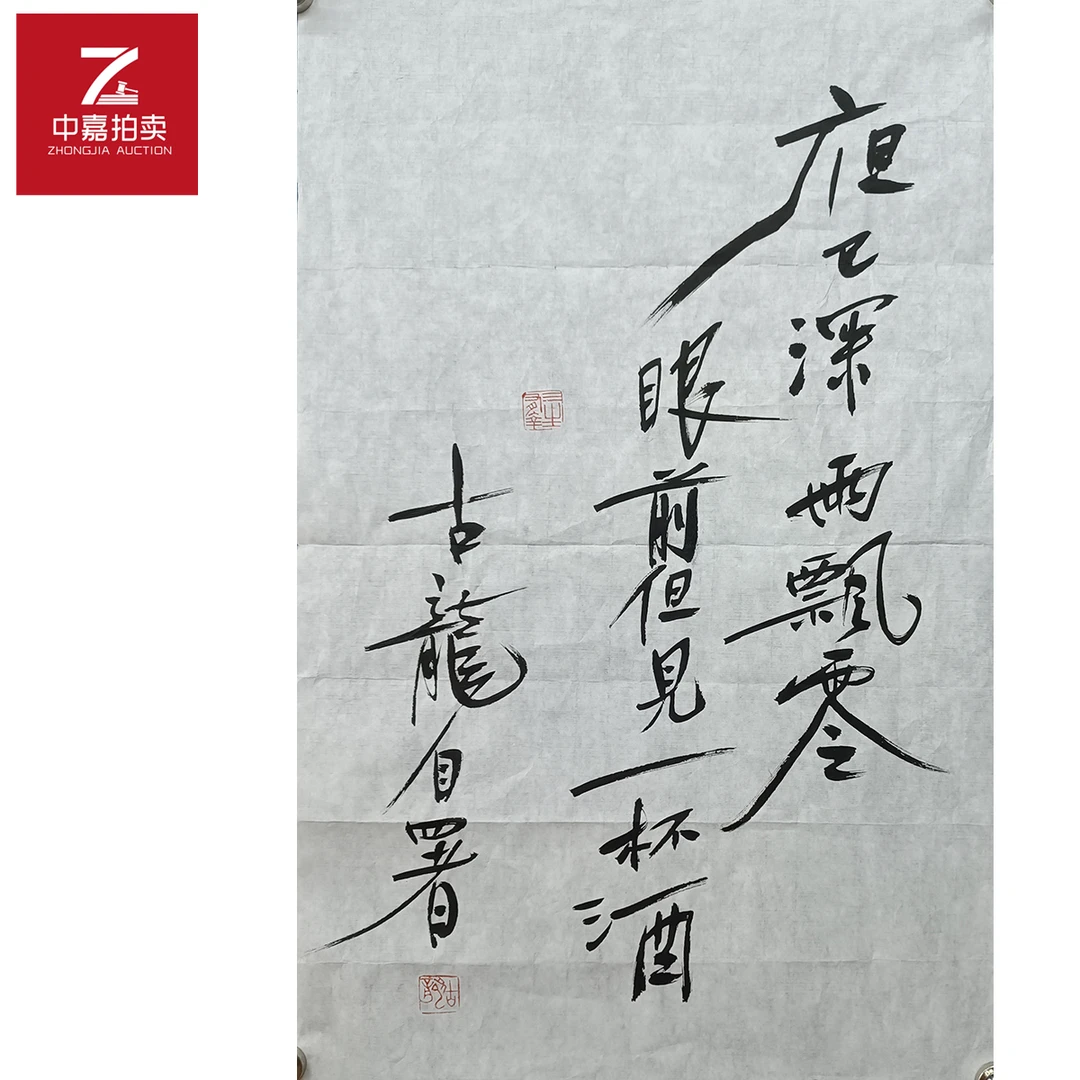 中嘉拍卖
ZHONGJIA AUCTION
夜已深雨飄零
眼前但見一杯酒
古龍自署
古龍